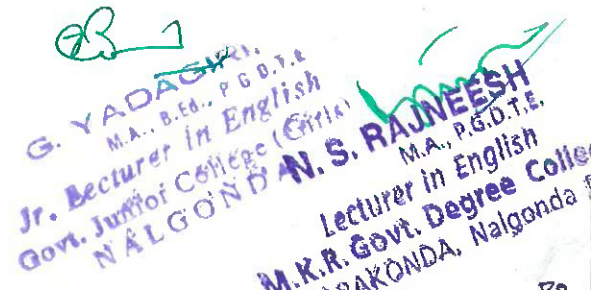 G. YADAGIRI,
M.A., B.Ed., P G D.T.E
Jr. Lecturer in English
Govt. Junior College (Girls)
NALGONDA
N. S. RAJNEESH
M.A., P.G.D.T.E.
Lecturer in English
M.K.R. Govt. Degree
Nalgonda